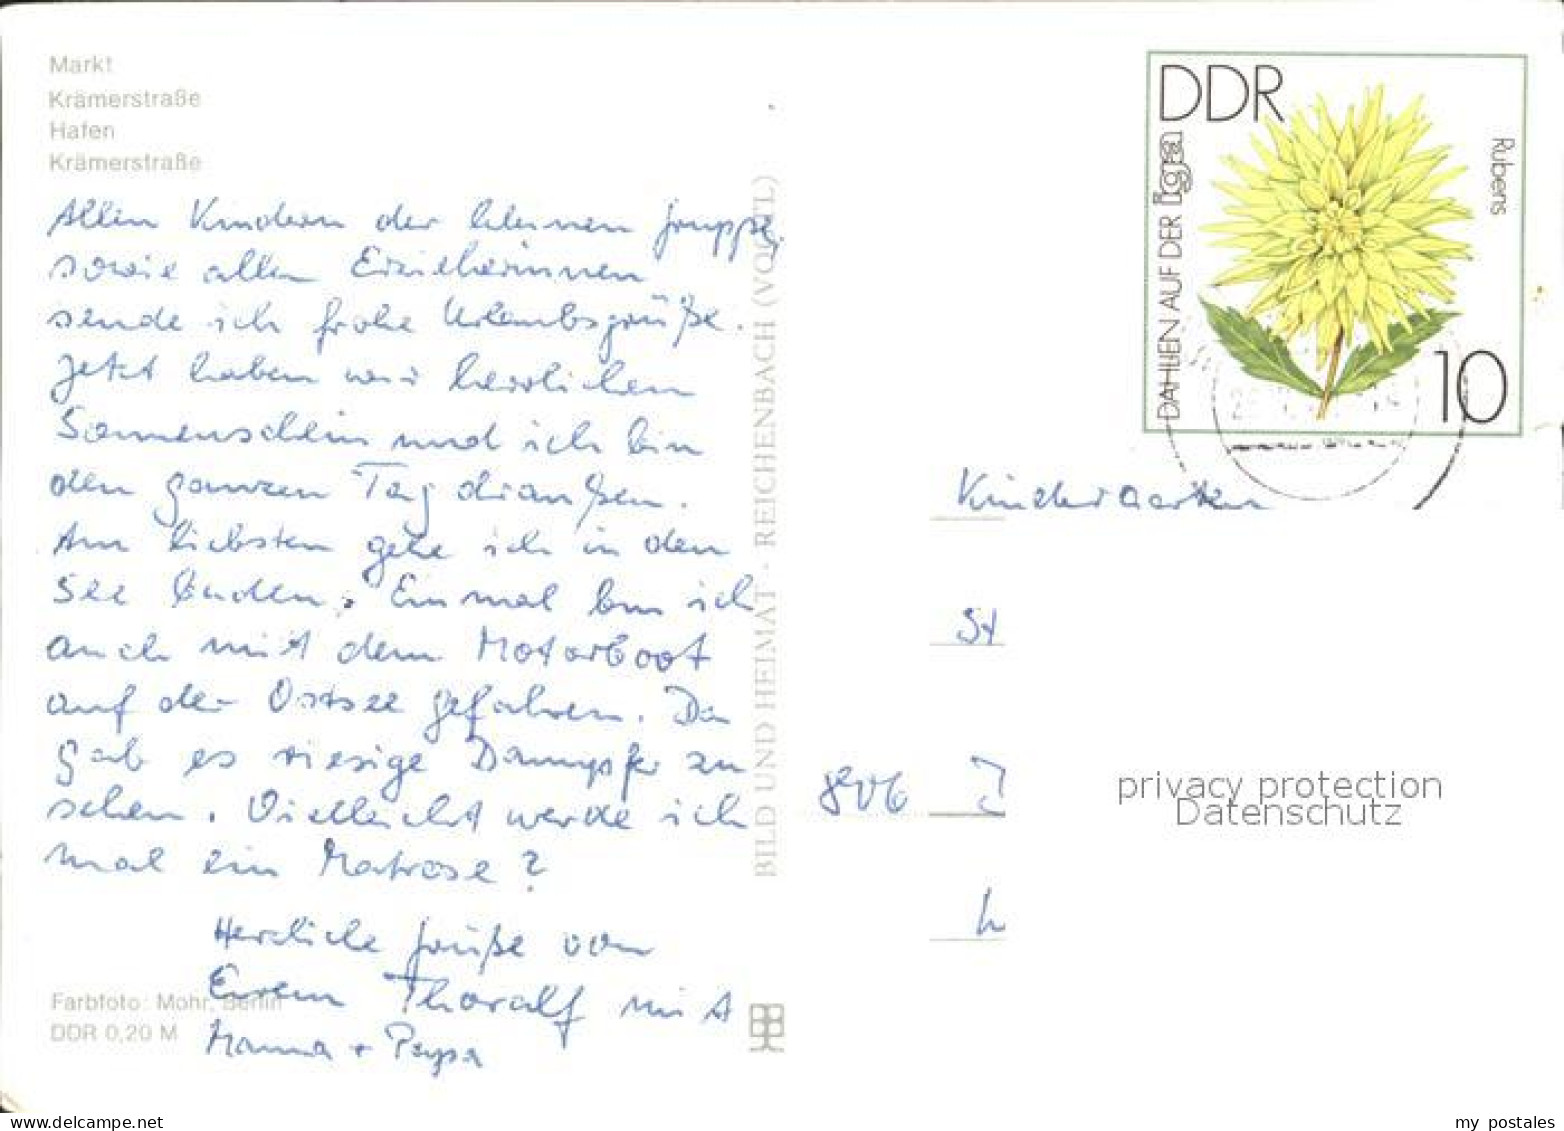 Markt
Krämerstraße
Hafen
Krämerstraße
Allen Kindern der kleinen Gruppe,
sowie allen Erzieherinnen
sende ich frohe Urlaubsgrüße.
Jetzt haben wir herrlichen
Sonnenschein und ich bin
den ganzen Tag draußen.
Am liebsten gehe ich in den
See baden. Einmal bin ich
auch mit dem Motorboot
auf der Ostsee gefahren. Da
gab es riesige Dampfer zu
sehen. Vielleicht werde ich
mal ein Matrose?
Herzliche Grüße von
Eurem Thoralf mit
Mama + Papa
Farbfoto: Mohr, Berlin
DDR 0,20 M
BILD UND HEIMAT · REICHENBACH (VOGTL)
DDR
DAHLIEN AUF DER iga
Rubens
10
Kindergarten
St
806
privacy protection
Datenschutz
www.delcampe.net
my_postales